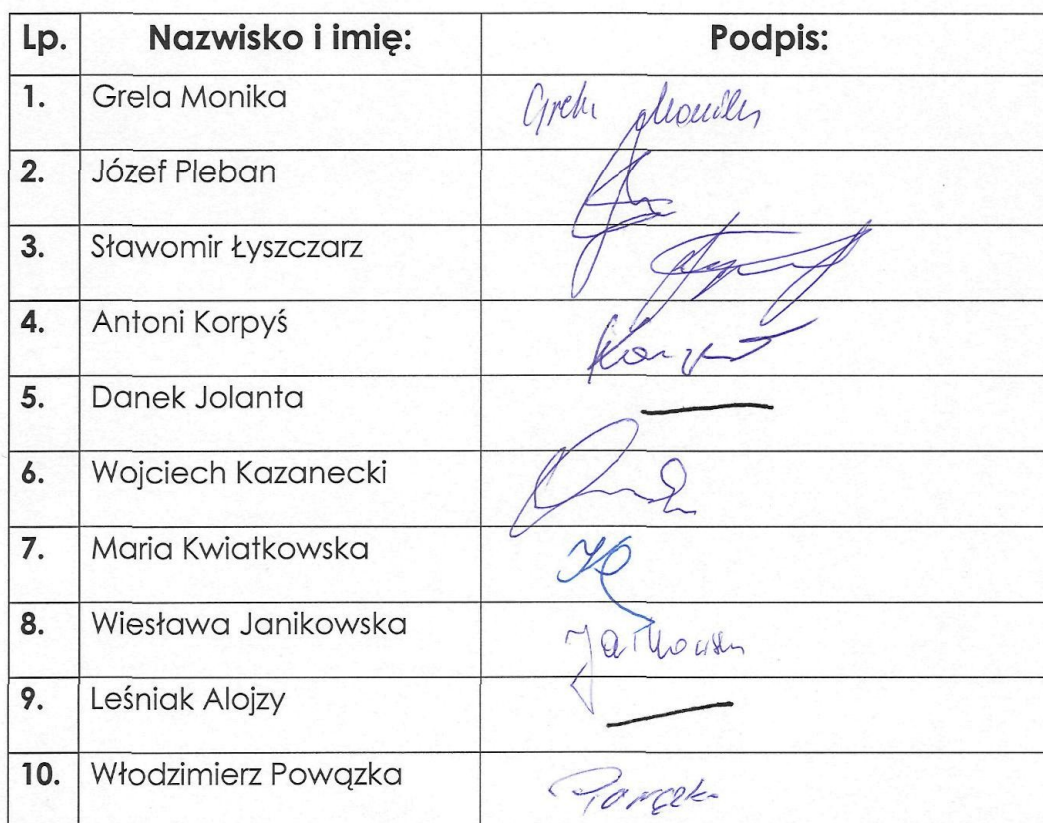 Lp. Nazwisko i imię: Podpis:
1. Grela Monika Grela Monika
2. Józef Pleban
3. Sławomir Łyszczarz
4. Antoni Korpyś
5. Danek Jolanta
6. Wojciech Kazanecki
7. Maria Kwiatkowska
8. Wiesława Janikowska
9. Leśniak Alojzy
10. Włodzimierz Powązka